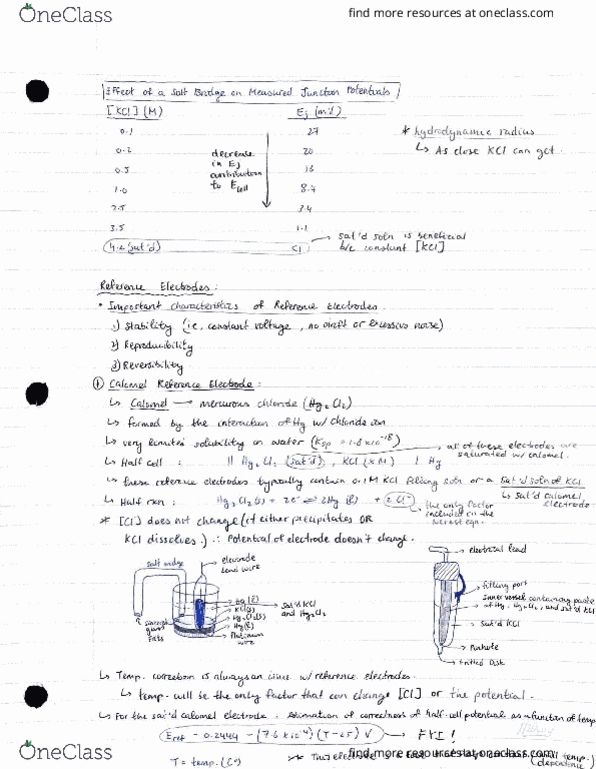 OneClass
find more resources at oneclass.com
Effect of a Salt Bridge on Measured Junction Potentials
[KCl] (M) Ej (mV)
0.1 27
0.2 20
0.5 13
1.0 8.4
2.5 3.4
3.5 1.1
4.2 (sat'd) <1
decrease
in Ej
contribution
to Ecell
* hydrodynamic radius
↳ As close KCl can get
→ sat'd soln is beneficial
b/c constant [KCl]
Reference Electrodes:
• Important characteristics of Reference Electrodes
1) Stability (i.e, constant voltage, no drift or excessive noise)
2) Reproducibility
3) Reversibility
① Calomel Reference Electrode:
↳ Calomel → mercurous chloride (Hg2Cl2)
↳ formed by the interaction of Hg w/ Chloride ion
↳ very limited solubility in water (Ksp = 1.8 x 10^-18)
→ all of these electrodes are
saturated w/ calomel.
↳ Half cell: || Hg2Cl2 (sat'd), KCl (xM) | Hg
↳ these reference electrodes typically contain 0.1M KCl filling soln or a sat'd soln of KCl
↳ sat'd calomel
electrode
↳ Half rxn: Hg2Cl2(s) + 2e- ⇌ 2Hg(l) + 2Cl-
↳ the only factor
included in the
Nernst eqn.
* [Cl] does not change (it either precipitates OR
KCl dissolves.) ∴ Potential of electrode doesn't change.
salt bridge
electrode
lead wire
Hg(l)
KCl(s)
Hg2Cl2(s)
Hg(l)
Platinum
wire
sat'd KCl
and Hg2Cl2
glass
frits
electrical lead
filling port
Inner vessel containing paste
of Hg, Hg2Cl2, and sat'd KCl
sat'd KCl
Pinhole
Fritted Disk
↳ Temp. correction is always an issue w/ reference electrodes.
↳ temp. will be the only factor that can change [Cl] or the potential.
↳ For the sat'd calomel electrode. Estimation of correctness of half-cell potential as a function of temp
Eref = 0.2444 - (7.6 x 10^-4)(T-25) V → FYI!
T = temp. (C°)
** This electrode
temp.
(dependence)
OneClass
find more resources at oneclass.com